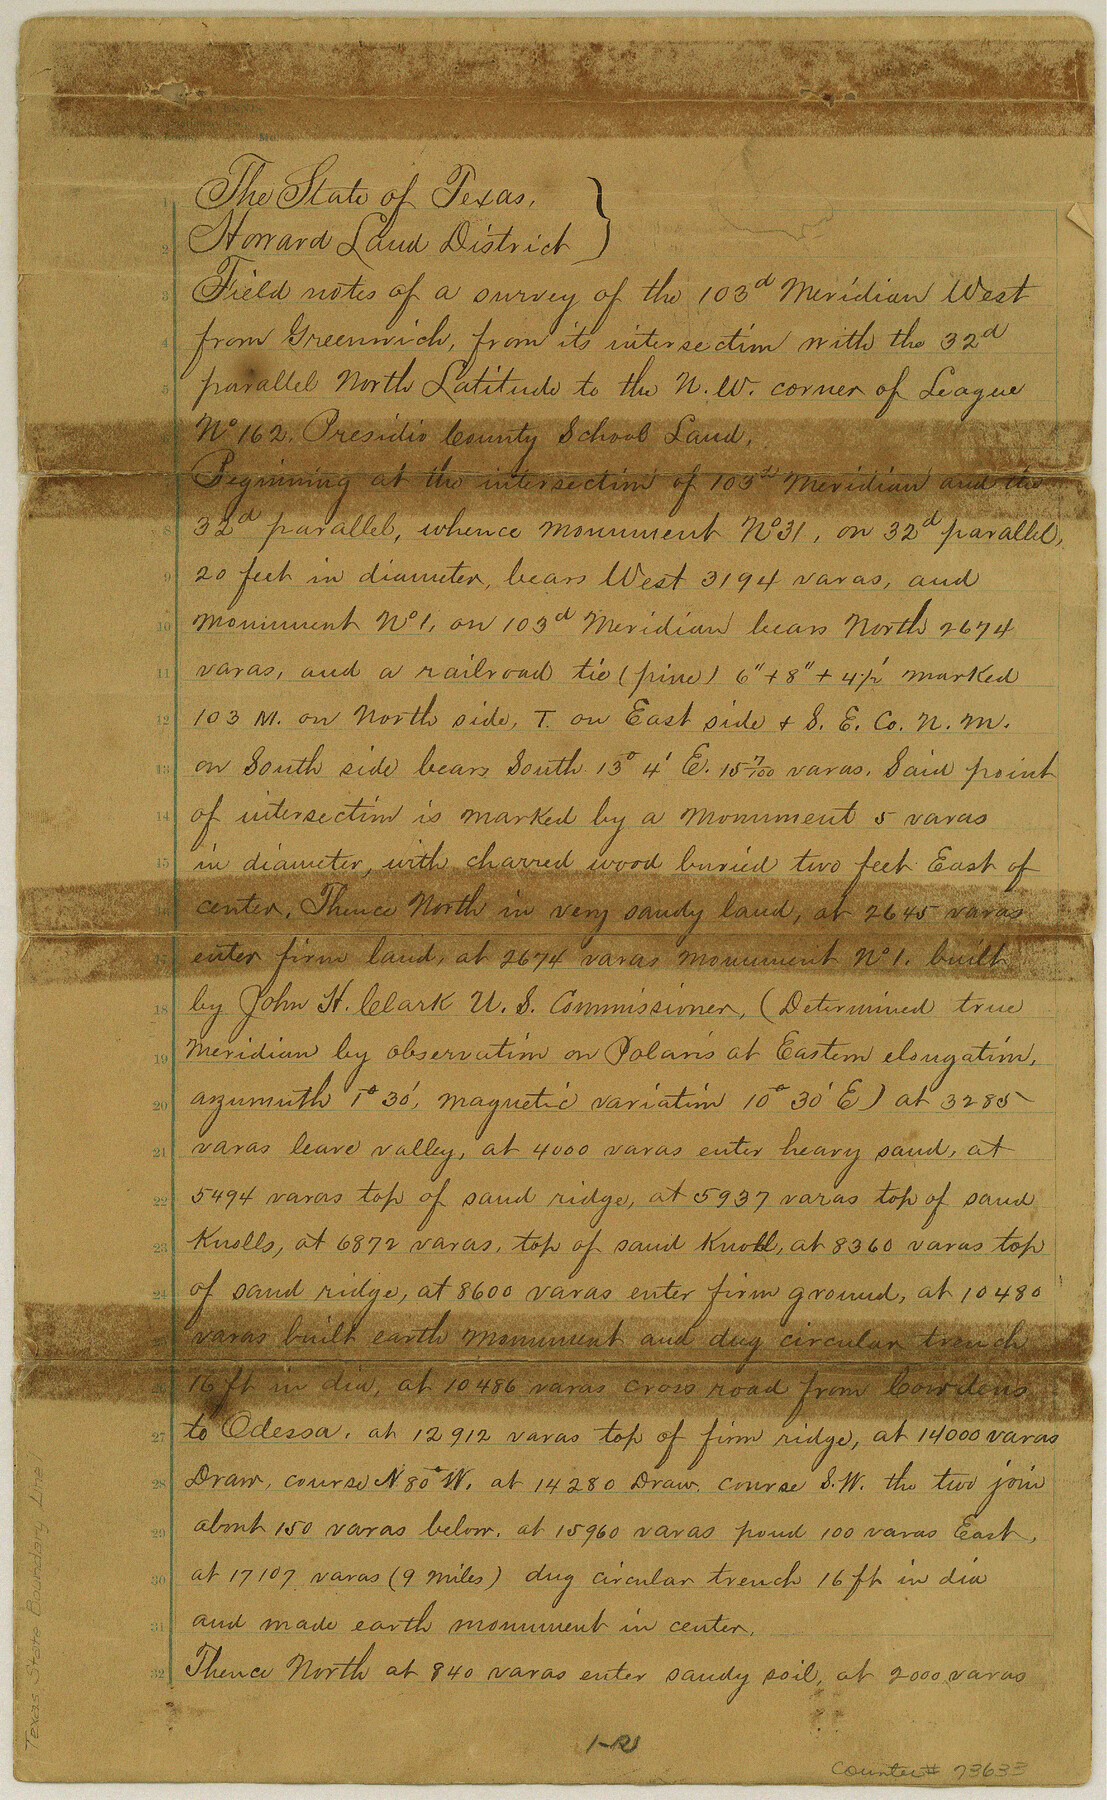 The State of Texas,
Howard Land District
Field notes of a survey of the 103d Meridian West
from Greenwich, from its intersection with the 32d
parallel North Latitude to the N.W. corner of League
No 162, Presidio County School Land.
Beginning at the intersection of 103rd Meridian and the
32d parallel, whence monument No 31, on 32d parallel,
20 feet in diameter, bears West 3194 varas, and
monument No 1, on 103d Meridian bears North 2674
varas, and a railroad tie (pine) 6" + 8" + 4½' marked
103 M. on North side, T. on East side + S. E. Co. N. M.
on South side bears South 13° 4' E. 15 7/100 varas. Said point
of intersection is marked by a monument 5 varas
in diameter, with charred wood buried two feet East of
center, Thence North in very sandy land, at 2645 varas
enter firm land, at 2674 varas monument No 1. built
by John H. Clark U. S. Commissioner, (Determined true
Meridian by observation on Polaris at Eastern elongation,
azumuth 1° 30', magnetic variation 10° 30' E) at 3285
varas leave valley, at 4000 varas enter heavy sand, at
5494 varas top of sand ridge, at 5937 varas top of sand
Knolls, at 6872 varas, top of sand Knoll, at 8360 varas top
of sand ridge, at 8600 varas enter firm ground, at 10480
varas built earth monument and dug circular trench
16 ft in dia, at 10486 varas cross road from Cowdens
to Odessa, at 12912 varas top of firm ridge, at 14000 varas
Draw, course N 80° W. at 14280 Draw, course S.W. the two join
about 150 varas below, at 15960 varas pond 100 varas East,
at 17107 varas (9 miles) dug circular trench 16 ft in dia
and made earth monument in center.
Thence North at 840 varas enter sandy soil, at 2000 varas
Texas State Boundary Line
Counter# 73633